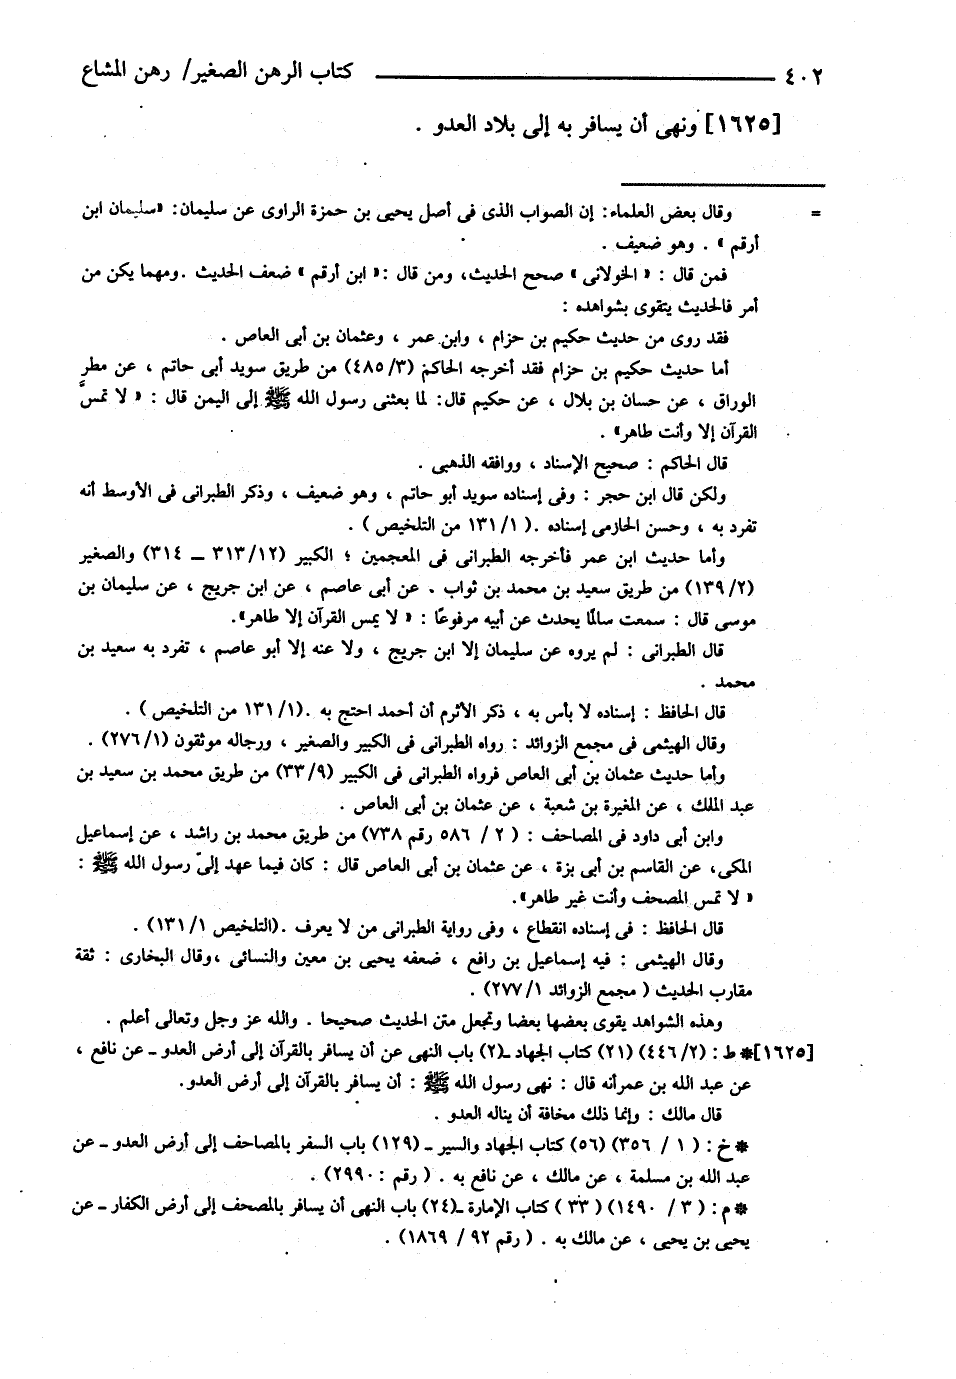 ٤٠٢ كتاب الرهن الصغير/ رهن المشاع
[١٦٢٥] ونهى أن يسافر به إلى بلاد العدو .
= وقال بعض العلماء: إن الصواب الذى فى أصل يحيى بن حمزة الراوى عن سليمان: «سليمان ابن
أرقم » . وهو ضعيف .
فمن قال : « الخولانى » صحح الحديث، ومن قال :« ابن أرقم » ضعف الحديث .ومهما يكن من
أمر فالحديث يتقوى بشواهده :
فقد روى من حديث حكيم بن حزام ، وابن عمر ، وعثمان بن أبى العاص .
أما حديث حكيم بن حزام فقد أخرجه الحاكم (٣/ ٤٨٥) من طريق سويد أبى حاتم ، عن مطرٍ
الوراق ، عن حسان بن بلال ، عن حكيم قال: لما بعثنى رسول الله ﷺ إلى اليمن قال : « لا تمسَّ
القرآن إلا وأنت طاهر» .
قال الحاكم : صحيح الإسناد ، ووافقه الذهبى .
ولكن قال ابن حجر : وفى إسناده سويد أبو حاتم ، وهو ضعيف ، وذكر الطبرانى فى الأوسط أنه
تفرد به ، وحسن الحازمى إسناده .( ١/ ١٣١ من التلخيص ) .
وأما حديث ابن عمر فأخرجه الطبرانى فى المعجمين ؛ الكبير (١٢/ ٣١٣ ــ ٣١٤) والصغير
(٢/ ١٣٩) من طريق سعيد بن محمد بن ثواب . عن أبى عاصم ، عن ابن جريج ، عن سليمان بن
موسى قال : سمعت سالمًا يحدث عن أبيه مرفوعًا : « لا يمس القرآن إلا طاهر».
قال الطبرانى : لم يروه عن سليمان إلا ابن جريج ، ولا عنه إلا أبو عاصم ، تفرد به سعيد بن
محمد .
قال الحافظ : إسناده لا بأس به ، ذكر الأثرم أن أحمد احتج به .(١/ ١٣١ من التلخيص ) .
وقال الهيثمى فى مجمع الزوائد : رواه الطبرانى فى الكبير والصغير ، ورجاله موثقون (١/ ٢٧٦) .
وأما حديث عثمان بن أبى العاص فرواه الطبرانى فى الكبير (٩/ ٣٣) من طريق محمد بن سعيد بن
عبد الملك ، عن المغيرة بن شعبة ، عن عثمان بن أبى العاص .
وابن أبى داود فى المصاحف : ( ٢ / ٥٨٦ رقم ٧٣٨) من طريق محمد بن راشد ، عن إسماعيل
المكى، عن القاسم بن أبى بزة ، عن عثمان بن أبى العاص قال : كان فيما عهد إلىّ رسول الله ﷺ :
« لا تمس المصحف وأنت غير طاهر».
قال الحافظ : فى إسناده انقطاع ، وفى رواية الطبرانى من لا يعرف .(التلخيص ١/ ١٣١) .
وقال الهيثمى : فيه إسماعيل بن رافع ، ضعفه يحيى بن معين والنسائى ،وقال البخارى : ثقة
مقارب الحديث ( مجمع الزوائد ١/ ٢٧٧) .
وهذه الشواهد يقوى بعضها بعضا وتجعل متن الحديث صحيحا . والله عز وجل وتعالى أعلم .
[١٦٢٥]* ط : (٢/ ٤٤٦) (٢١) كتاب الجهاد ـ(٢) باب النهى عن أن يسافر بالقرآن إلى أرض العدو ـ عن نافع ،
عن عبد الله بن عمرأنه قال : نهى رسول الله ﷺ : أن يسافر بالقرآن إلى أرض العدو.
قال مالك : وإنما ذلك مخافة أن يناله العدو .
* خ : ( ١ / ٣٥٦) (٥٦) كتاب الجهاد والسير ـ (١٢٩) باب السفر بالمصاحف إلى أرض العدو ـ عن
عبد الله بن مسلمة ، عن مالك ، عن نافع به . ( رقم : ٢٩٩٠) .
* م : ( ٣ / ١٤٩٠) ( ٣٣ ) كتاب الإمارة ـ(٢٤) باب النهى أن يسافر بالمصحف إلى أرض الكفار ـ عن
يحيى بن يحيى ، عن مالك به . ( رقم ٩٢ / ١٨٦٩) .